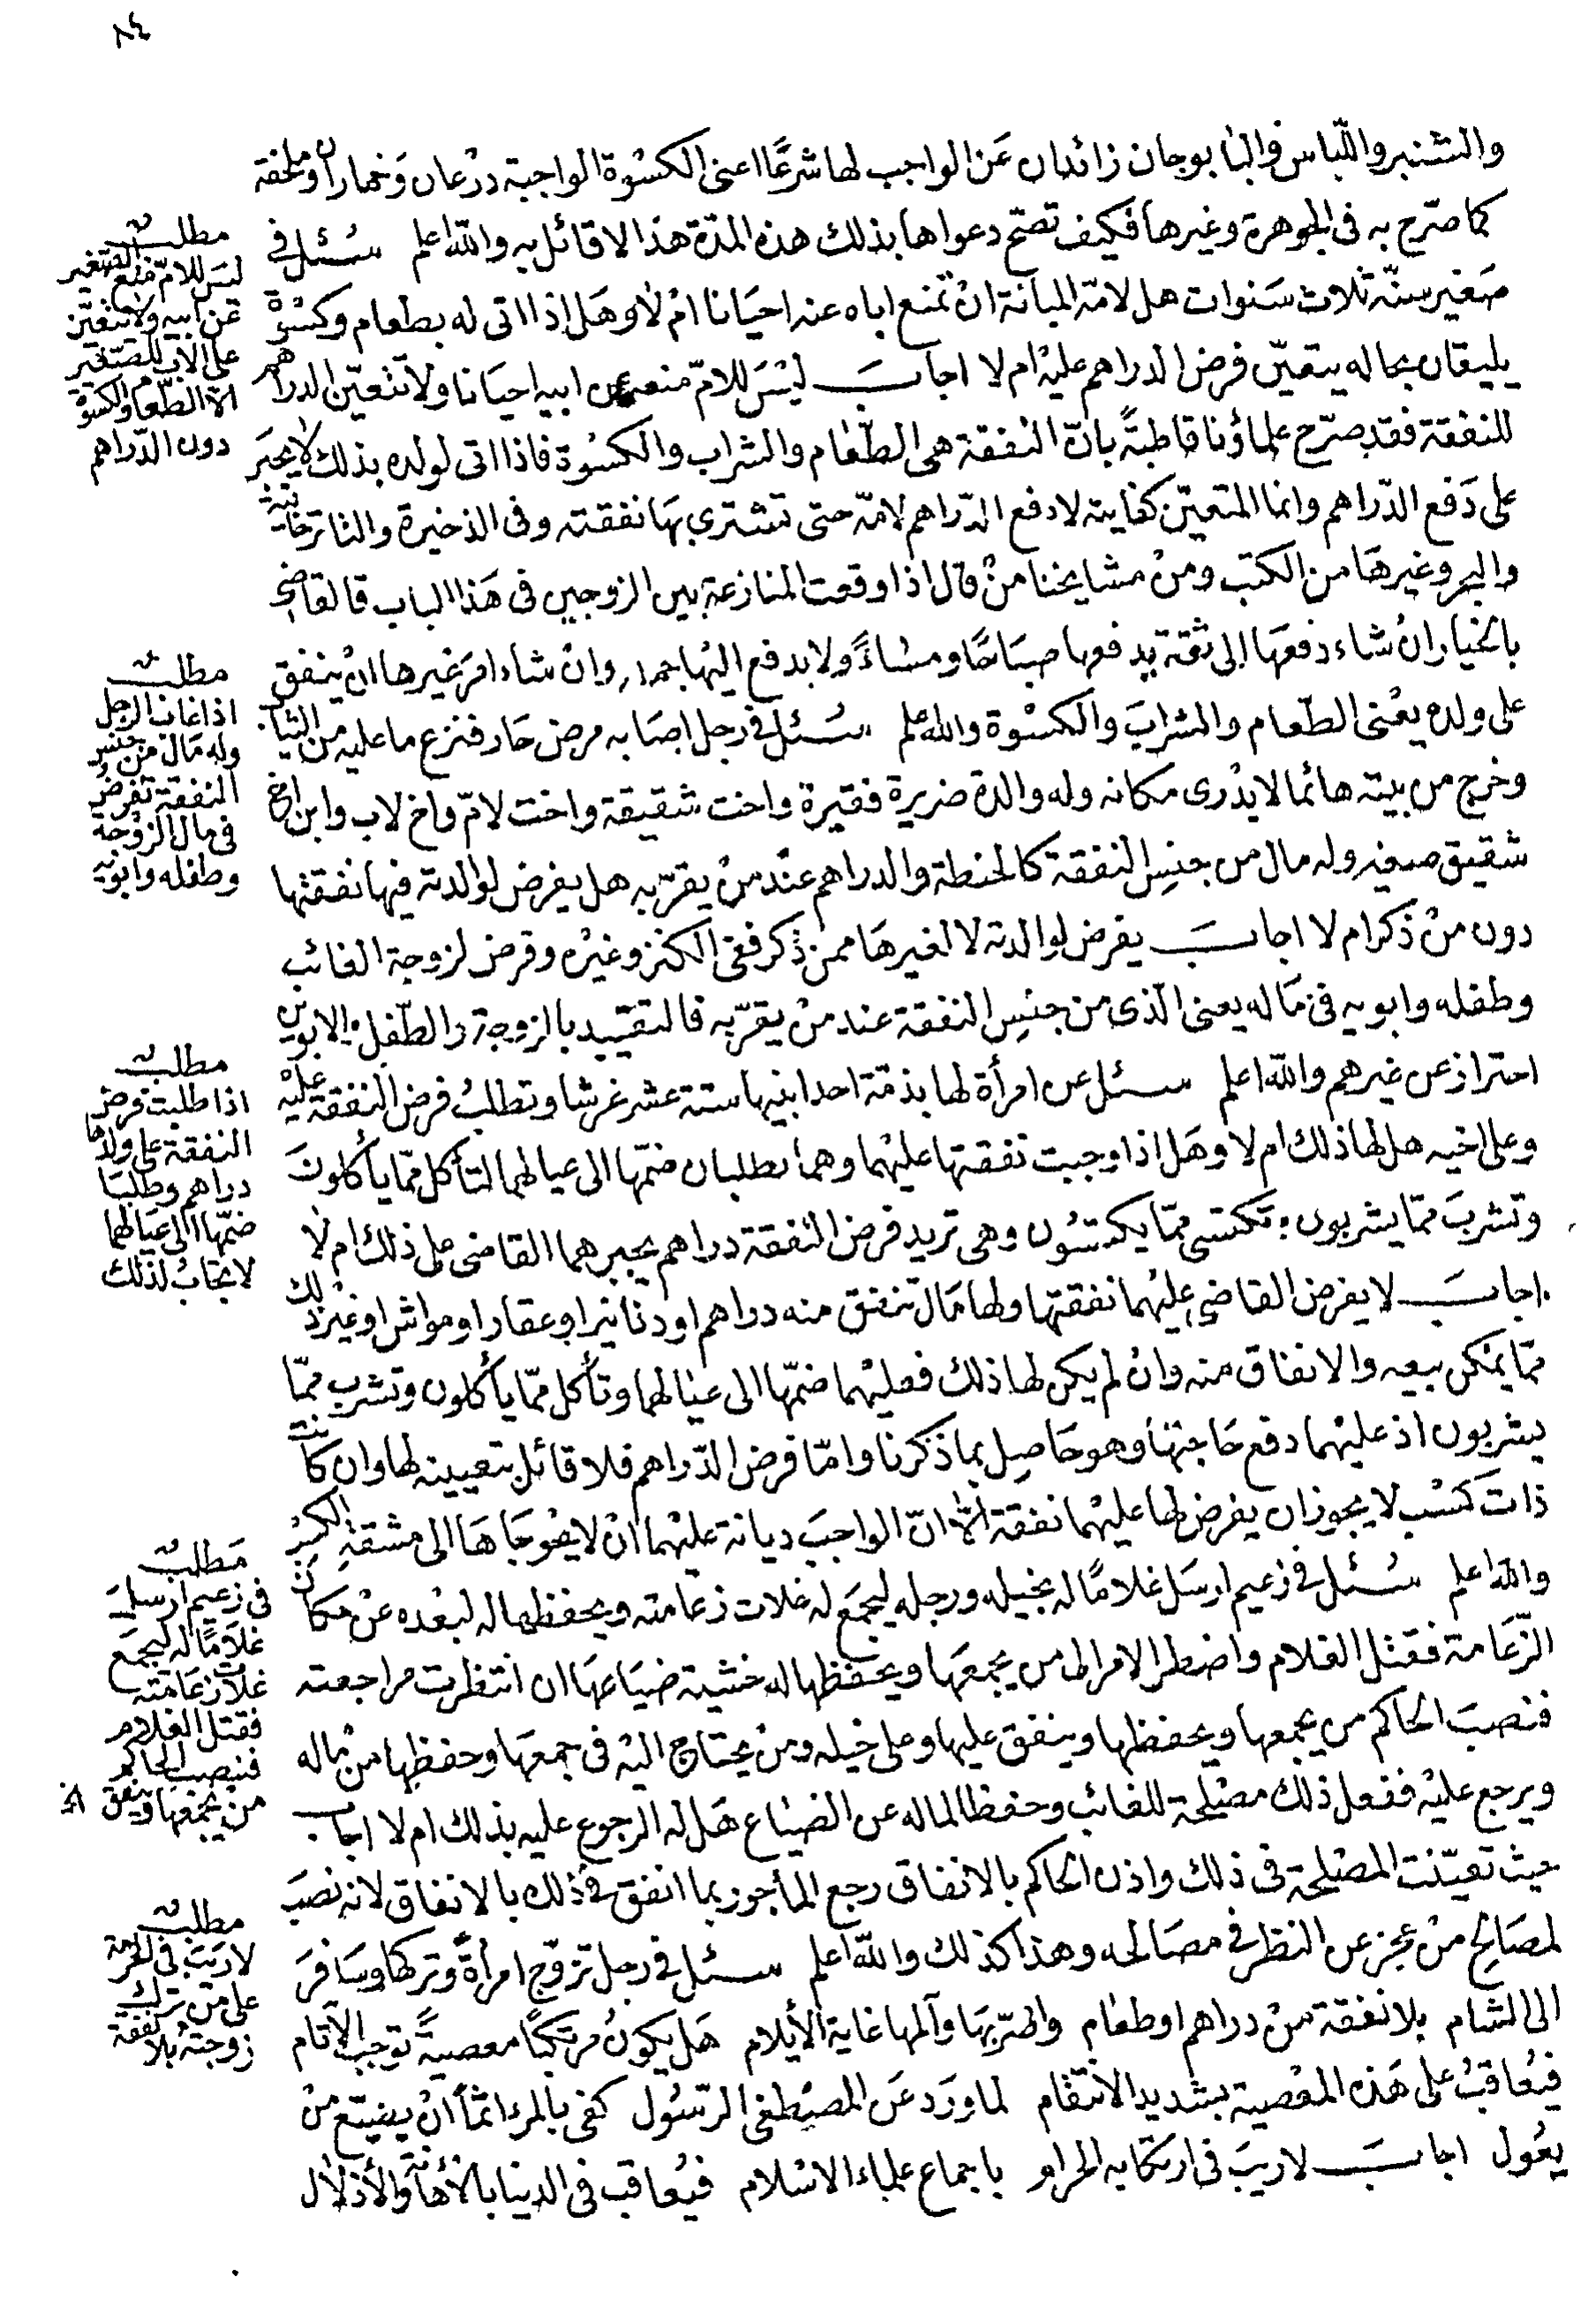 ٨٤
والشنبر واللباس والبابوجان زائدان عَن الواجب لها شرعًا اعنى الكسْوة الواجبة درْعان وَخماران وملحفة
كما صرّح به فى الجوهرة وغيرها فكيف تصحّ دعواها بذلك هذه المدّة هذا لا قائل به والله اعلم سُئل فى
صَغير سنّه ثلاث سَنوات هل لامّه المبانة انْ تمنع اباه عنه احيَانا امْ لا وهَل اذا اتى له بطعام وكسْوة
يليقان بحاله يتعيّن فرض الدراهم عليْه ام لا اجابَ ليْسَ للامّ منعه عن ابيه احيَانا ولا تتعيّن الدراهم
للنفقة فقد صرّح علماؤنا قاطبةً بانّ النفقة هى الطّعام والشراب والكسْوة فاذا اتى لولده بذلك لا يجبَر
على دَفع الدّراهم وانما المتعيّن كفايته لا دفع الدّراهم لامّه حتى تشترى بهَا نفقته وفى الذخيرة والتاترخانية
والبحر وغيرهَا من الكتب ومنْ مشايخنا منْ قال اذا وقعت المنازعة بين الزوجين فى هَذا الباب فالقاضى
بالخيار انْ شاء دفعَها الى ثقة يدفعها صبَاحًا ومساءً ولا يدفع اليْها جملة وانْ شاء امرَ غيرها انْ ينفق
على ولده يعْنى الطّعام والشرابَ والكسْوة والله اعلم سُئل فى رجل اصَابه مرض حَار فنزع ما عليه من الثياب
وخرج من بيته هائما لا يدْرى مكانه وله والدة ضريرة فقيرة واخت شقيقة واخت لامّ واخ لاب وابن اخ
شقيق صغير وله مال من جنسِ النفقة كالحنطة والدراهم عنْد منْ يقرّ به هل يفرض لوالدته فيها نفقتها
دون منْ ذكر ام لا اجابَ يفرض لوالدته لا لغيرهَا ممن ذُكر ففى الكنز وغيْره وفرض لزوجة الغائب
وطفله وابويه فى مَاله يعنى الّذى من جنسِ النفقة عند منْ يقرّ به فالتقييد بالزوجة والطّفل والابوين
احتراز عن غيرهم والله اعلم سئل عن امرأة لها بذمّة احد ابنيها ستة عشر غرشا وتطلبُ فرض النفقة عليْه
وعلى اخيه هل لها ذلك ام لا وهَل اذا وجبت نفقتها عليْهما وهما يطلبان ضمّها الى عيالهما لتأكل ممّا يأكلونَ
وتشربَ ممّا يشربون وتكتسى ممّا يكتسُون وهى تريد فرض النفقة دراهم يجبرهما القاضى على ذلك ام لا
اجابَ لا يفرض القاضى عليْهما نفقتها ولها مَال تنفق منه دراهم او دنانير او عقار او مواش او غيْر ذلك
ممّا يمْكن بيعه والانفاق منه وانْ لم يكن لها ذلك فعليْهما ضمّها الى عيَالهما وتأكل ممّا يأكلون وتشرب ممّا
يشربون اذ عليْهما دفع حَاجتها وهو حَاصِل بما ذكرنا وامّا فرض الدّراهم فلا قائل بتعيينه لها وان كانت
ذاتَ كسْب لا يجوز ان يفرض لها عليْهما نفقة الّا انّ الواجبَ ديانة عليْهما انْ لا يحْوجَاهَا الى مشقةِ الكسْب
والله اعلم سُئل فى زعيم ارسَل غلامًا له بخيله ورجله ليجمَع له غلات زعامته ويحفظها له لبعْده عنْ مكان
الزّعَامة فقتل الغلام واضطر الامر الى من يجمعَها ويحفظها له خشية ضيَاعهَا ان انتظرت مراجعته
فنصبَ الحاكم من يجمعها ويحفظها وينفق عليها وعلى خيله ومنْ يحتاج اليْه فى جمعهَا وحفظها منْ ماله
ويرجع عليْه ففعل ذلك مصْلحة للغائب وحفظا لماله عن الضيَاع هَل له الرجوع عليه بذلك ام لا اجاب
حيث تعيّنت المصْلحة فى ذلك واذن الحاكم بالانفاق رجع المأجور بما انفق فى ذلك بالانفاق لانه نصبَ
لمصَالح منْ عجز عن النظر فى مصَالحه وهذا كذلك والله اعلم سئل فى رجل تزوّج امرأةً وتركها وسَافرَ
الى الشام بلا نفقة منْ دراهم او طعام واضرّ بهَا وآلمها غاية الأيلام هَل يكونُ مرتكبًا معصيةً توجب الآثام
فيُعاقبُ على هَذه المعْصية بشديد الانتقام لما ورَد عَن المصْطفى الرّسُول كفى بالمرء اثماً انْ يضيّع منْ
يعُول اجابَ لا ريبَ فى ارتكابه الحرام باجماع علماء الاسْلام فيُعاقب فى الدنيا بالأهانة والأذلال
مطلب
ليسَ للامّ منع الصّغير
عن ابيه ولا تتعيّن
على الاب للصّغير
الّا الطّعام والكسوة
دون الدّراهم
مطلب
اذا غاب الرجل
وله مَال من جنس
النفقة تفرض
فى مال الزوجة
وطفله وابويه
مطلب
اذا طلبت فرض
النفقة على ولدها
دراهم وطلبَا
ضمّها الى عيَالهما
لا تجَابُ لذلك
مَطلب
فى زعيم ارسلَ
غلامًا له ليجمع
غلات زعَامته
فقتل الغلام
فنصب الحاكم
من يجمعها وينفق الخ
مطلب
لا ريَبَ فى الحرمة
على من ترك
زوجته بلا نفقة